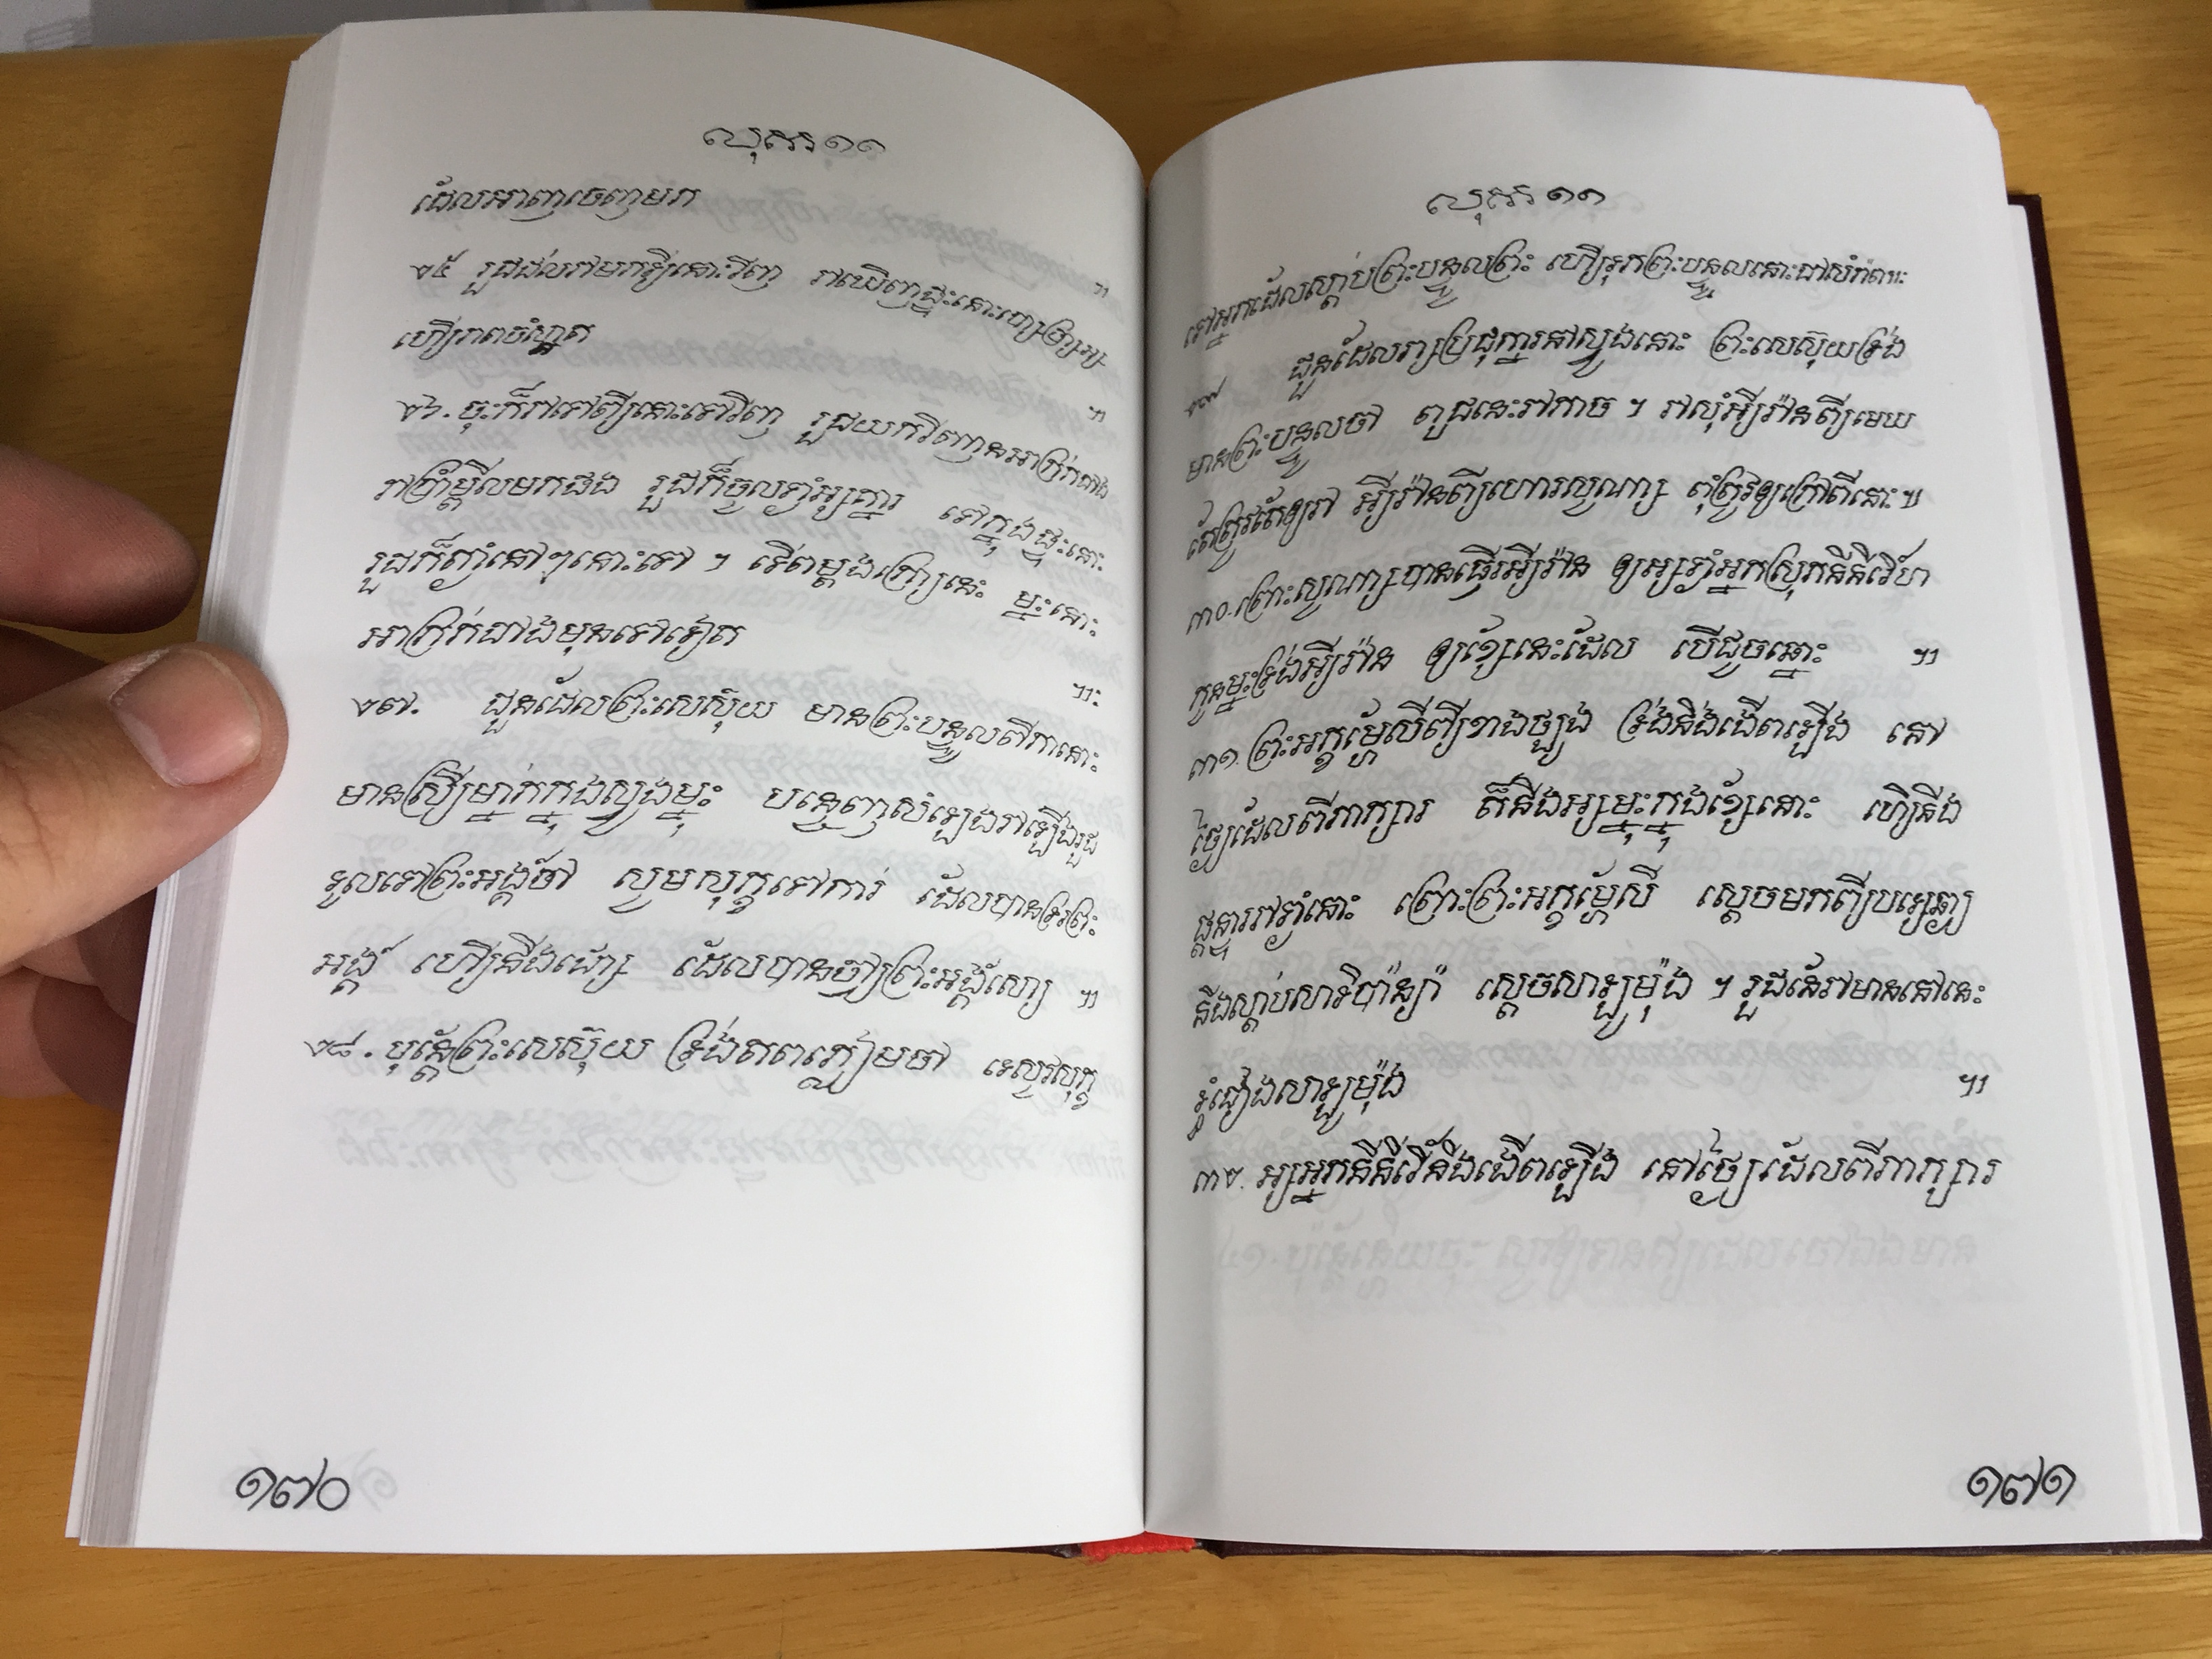 លុកា ១១
ដែលអាញចេញមក
២៥ រួជដល់វាមកឡីនោះវិញ វាឃើញផ្ទះនោះ
ហើយរាពចំណ្អត
២៦. ចុះក៏វាទៅពីនោះទៅវិញ រួជយកវិញានអាក្រក់ជាង
វាប្រាំម្ពីលមកផង រួជក៏ចូលទាំងអ្យគ្នារ ទៅក្នុងផ្ទះនោះ
រួជក៏តាំនៅៗនោះទៅ ។ ទើតម្តងក្រោ្យនេះ ម្នុះនោះ
អាក្រក់ជាងមុនទៅទៀត
២៧. ដួនដែលព្រះយេស៊ុយ មានព្រះបន្ទួលពីកានោះ
មានស្រីម្នាក់ក្នុងហ្វូងម្នុះ បន្ចេញសំឡេងវាឡើងរួជ
ទូលទៅព្រះអង្គថា សូមសុក្ខទៅការ់ ដែលបានទរព្រះ
អង្គ៍ ហើយនឹងដោះ ដែលបានចា្យព្រះអង្គ៍សោ្យ ។
២៨. បុន្តែព្រះយេស៊ុយ ទ្រង់តពភ្លៀមថា ទេសូវសុក្ខ
១៧០
លុកា ១១
ទៅអ្នកដែលស្តាប់ព្រះបន្ទួលព្រះ ហើយទុកព្រះបន្ទួលនោះជាសំរាប់
២៩ ដួនដែលវា្យប្រជុំគ្នារនៅហ្វូងនោះ ព្រះយេស៊ុយទ្រង់
មានព្រះបន្ទួលថា ពូជនេះវាកាច ។ វាសុំអ្វីរ៉ានពីមេឃ
តែត្រូវតែឲ្យវា អ្វីរ៉ានពីហោរសូណាស្យ ពុំត្រូវឲ្យក្រៅពីនោះ ។
៣០. ព្រោះសូណាស្យបានធ្វើរអ្វីរ៉ាន ឲ្យអ្យទាំងអ្នកស្រុកនីនីវើហា
កូនម្នុះទ្រង់អ្វីរ៉ាន ឲ្យខែ្សនេះដែល បើដូចច្នោះ ។
៣១. ព្រះអក្ខម្ហែសីពីខាងត្បូង ទ្រង់នឹងងើពឡើង នៅ
ថ្ងៃដែលពីភាក្សារ ក៏នឹងអ្យម្នុះក្នុងខែ្សនោះ ហើយនឹង
ផ្តន្ទារវាទាំនោះ ព្រោះព្រះអក្ខម្ហែសី ស្តេចមកពី
នឹងស្តាប់សាទិប៉ាន្យ៉ា ស្តេចសាឡូម៉ុង ។ រួជនែវាមាននៅនេះ
ធំជៀងសាឡូម៉ុង ។
៣២. អ្យអ្នកនីនីវើនឹងងើពឡើង នៅថ្ងៃដែលពីភាក្សារ
១៧១